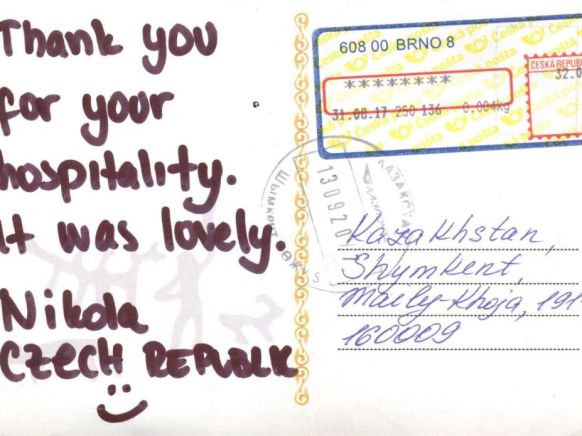 Thank you
for your
hospitality.
It was lovely.
Nikola
CZECH REPUBLIK
608 00 BRNO 8
********
31.08.17 250 136 0.004kg
ČESKÁ REPUBL
32.0
Česká pošta
КАЗАХСТА
Шымкент
130920
Kazakhstan,
Shymkent,
Maily Khoja, 191
160009